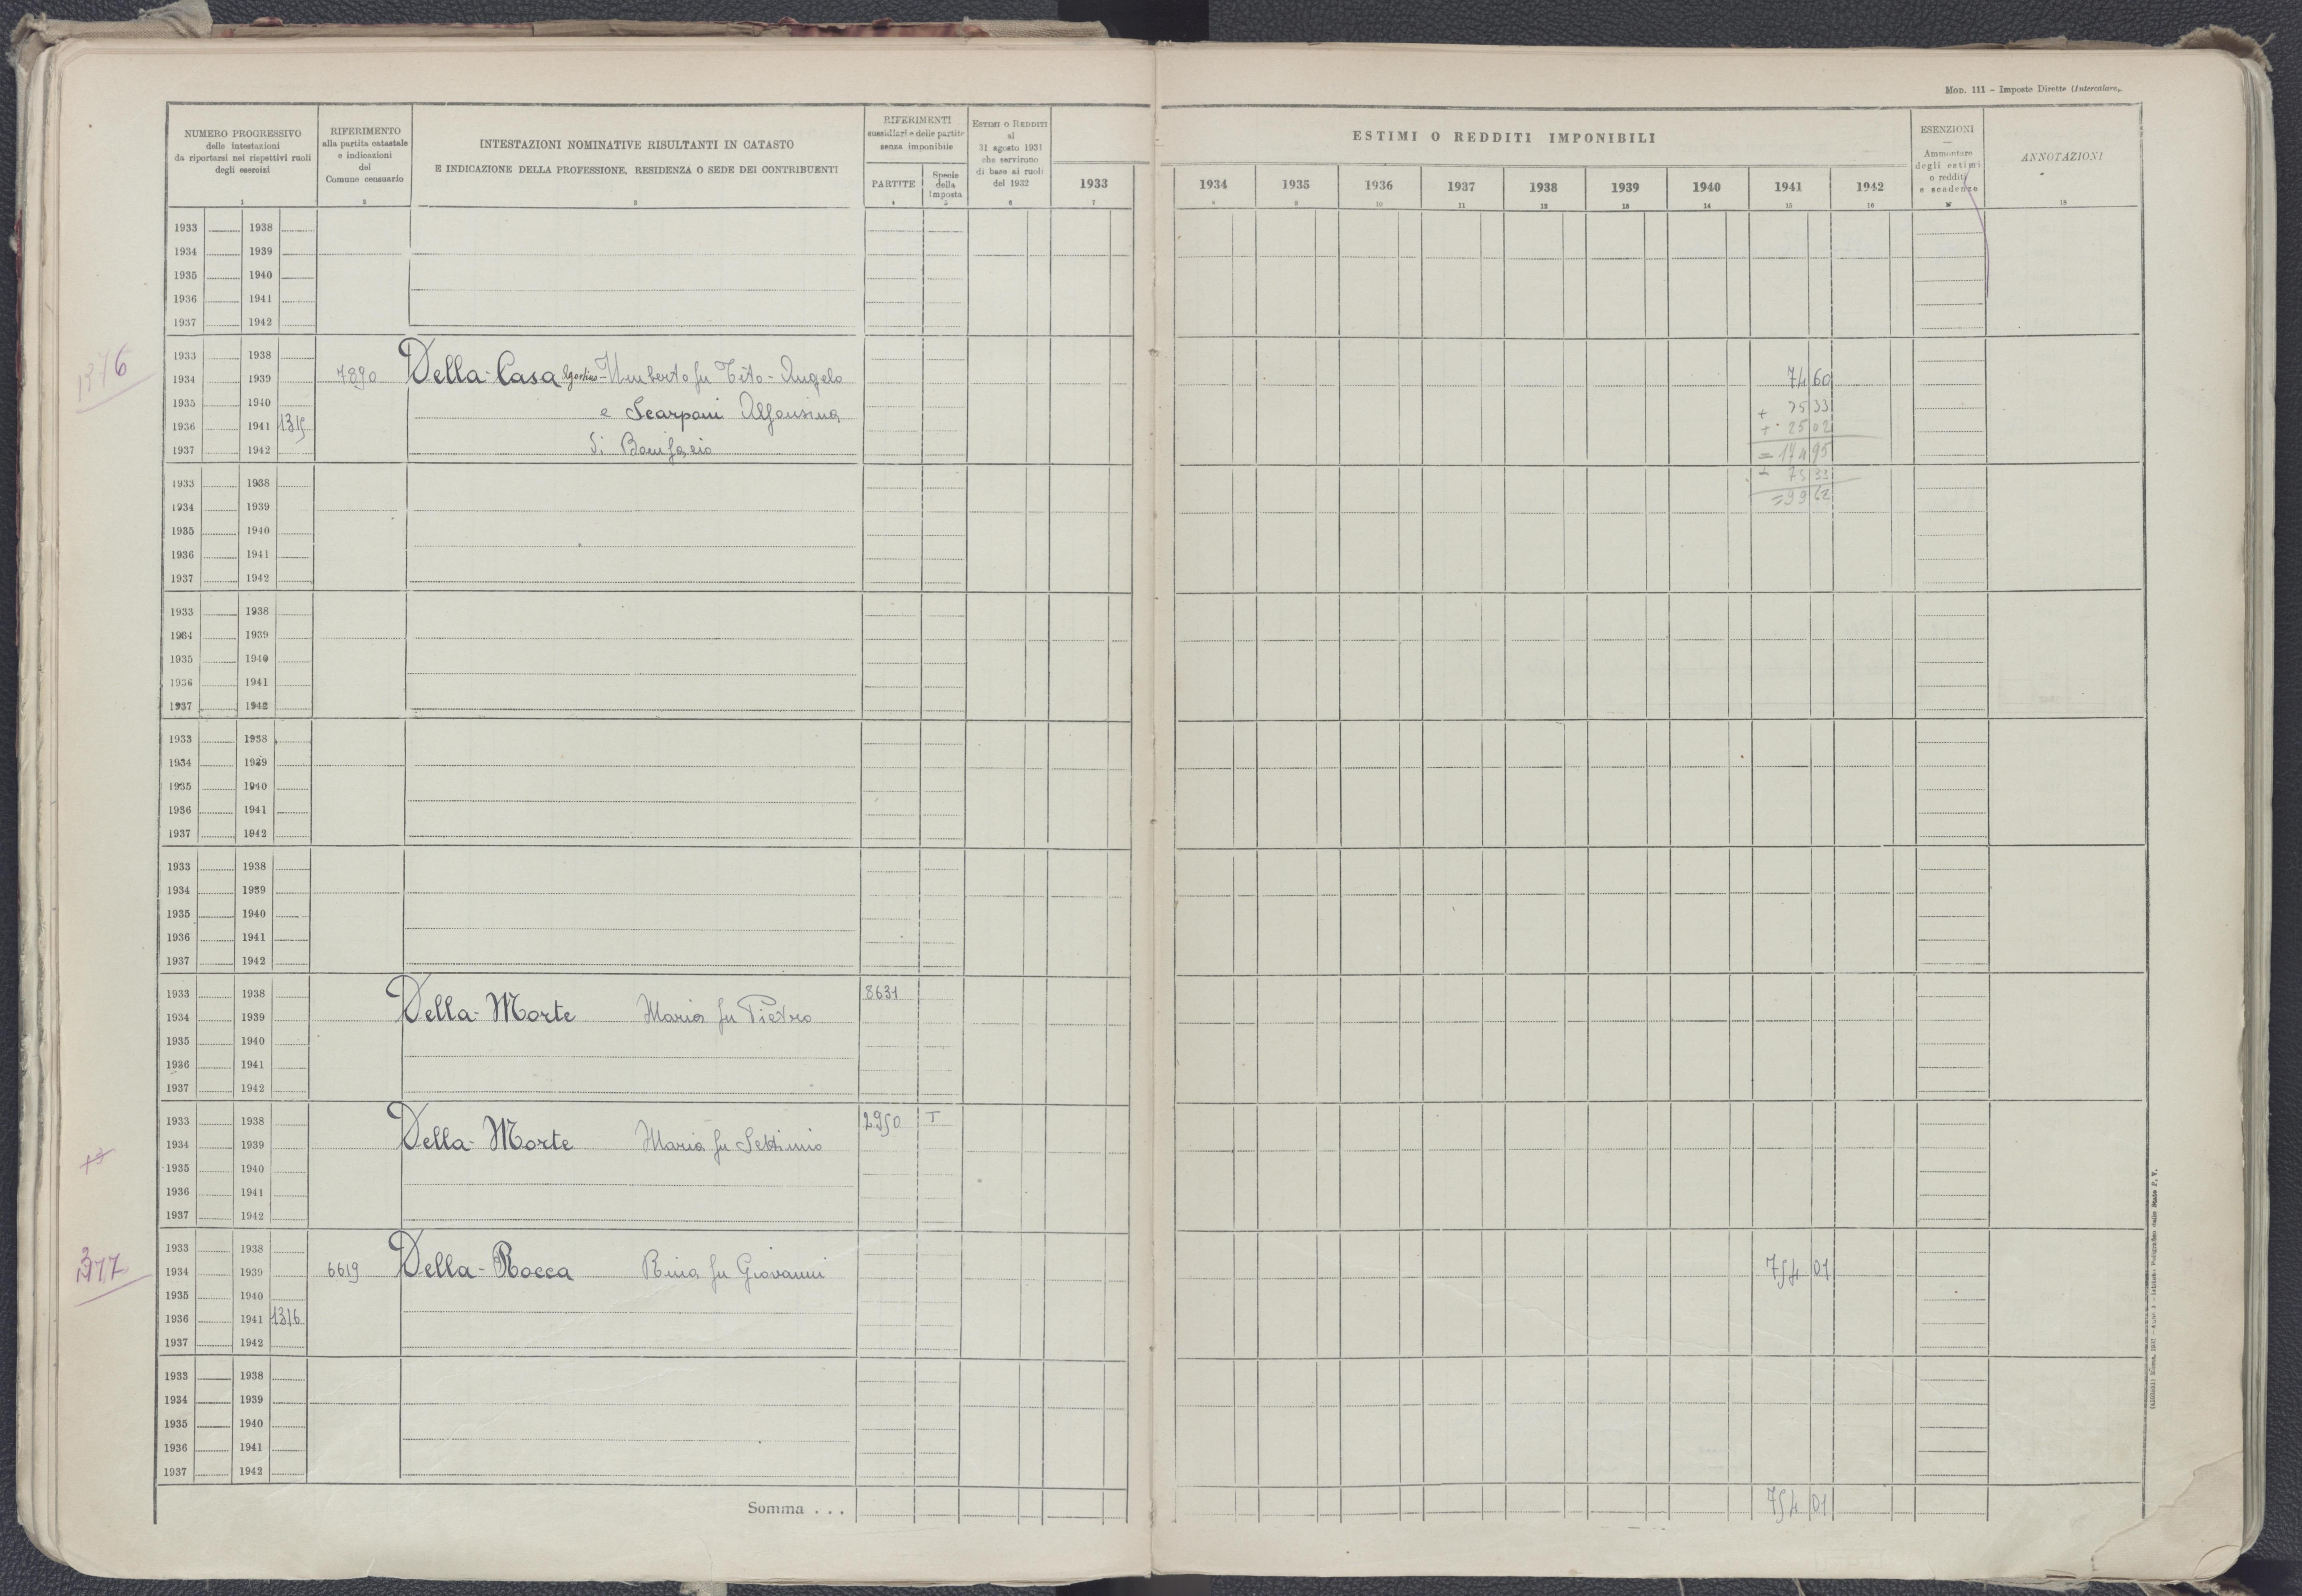 MOD. 111 - Imposte Dirette (Intercalare,
NUMERO PROGRESSIVO
delle intestazioni
da riportarsi nei rispettivi ruoli
degli esercizi
1
RIFERIMENTO
alla partita catastale
e indicazioni
del
Comune censuario
2
INTESTAZIONI NOMINATIVE RISULTANTI IN CATASTO
E INDICAZIONE DELLA PROFESSIONE, RESIDENZA O SEDE DEI CONTRIBUENTI
3
RIFERIMENTI
sussidiari e delle partite
senza imponibile
PARTITE
4
Specie
della
imposta
5
ESTIMI O REDDITI
al
31 agosto 1931
che servirono
di base ai ruoli
del 1932
6
1933
7
ESTIMI O REDDITI IMPONIBILI
1934 1935 1936 1937 1938 1939 1940 1941 1942
8 9 10 11 12 13 14 15 16
ESENZIONI
Ammontare
degli estimi
o redditi
e scadenze
17
ANNOTAZIONI
18
1933 1938
1934 1939
1935 1940
1936 1941
1937 1942
1933 1938
1934 1939 7890 Della-Casa Umberto fu Tito-Angelo 74 60
1935 1940 e Scarponi Alfonsina + 75 33
1936 1941 1315 + 25 02
1937 1942 di Bonifazio = 174 95
1933 1938 - 75 33
1934 1939 = 99 62
1935 1940
1936 1941
1937 1942
1933 1938
1934 1939
1935 1940
1936 1941
1937 1942
1933 1938
1934 1939
1935 1940
1936 1941
1937 1942
1933 1938
1934 1939
1935 1940
1936 1941
1937 1942
1933 1938 8631
1934 1939 Della-Morte Maria fu Pietro
1935 1940
1936 1941
1937 1942
1933 1938 2950 T
1934 1939 Della-Morte Maria fu Settimio
1935 1940
1936 1941
1937 1942
1933 1938
377
1934 1939 6619 Della-Rocca Rina fu Giovanni 754 01
1935 1940
1936 1941 1316
1937 1942
1933 1938
1934 1939
1935 1940
1936 1941
1937 1942
Somma . . . 754 01